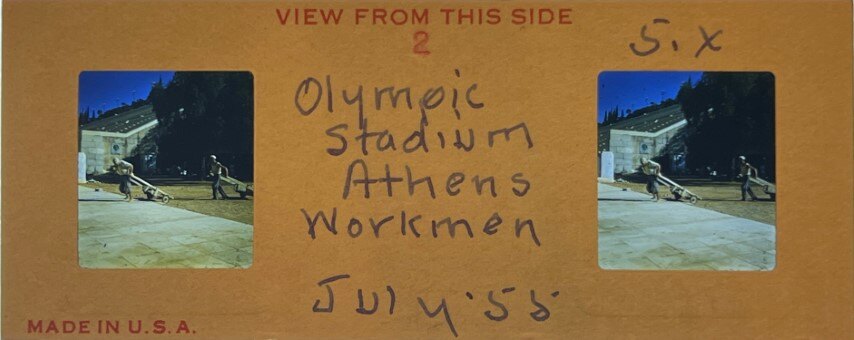 VIEW FROM THIS SIDE
2
5.x
Olympic
Stadium
Athens
Workmen
July '55
MADE IN U.S.A.